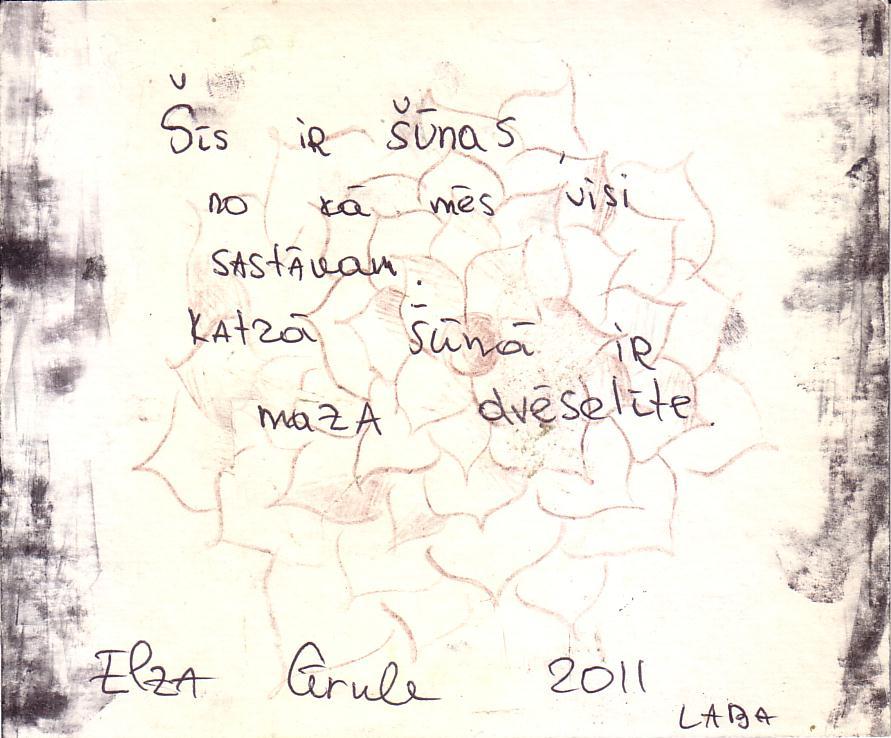 Šīs ir šūnas,
no kā mēs visi
sastāvam.
Katrā šūnā ir
maza dvēselīte.
Elza Grule 2011
LABA